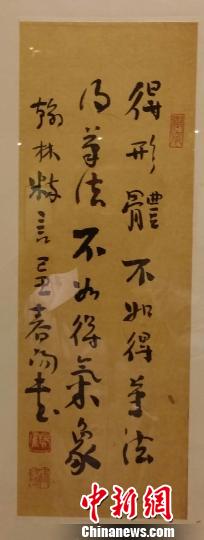 得形體不如得筆法
得筆法不如得氣象
翰林粹言己丑春
中新網
Chinanews.com